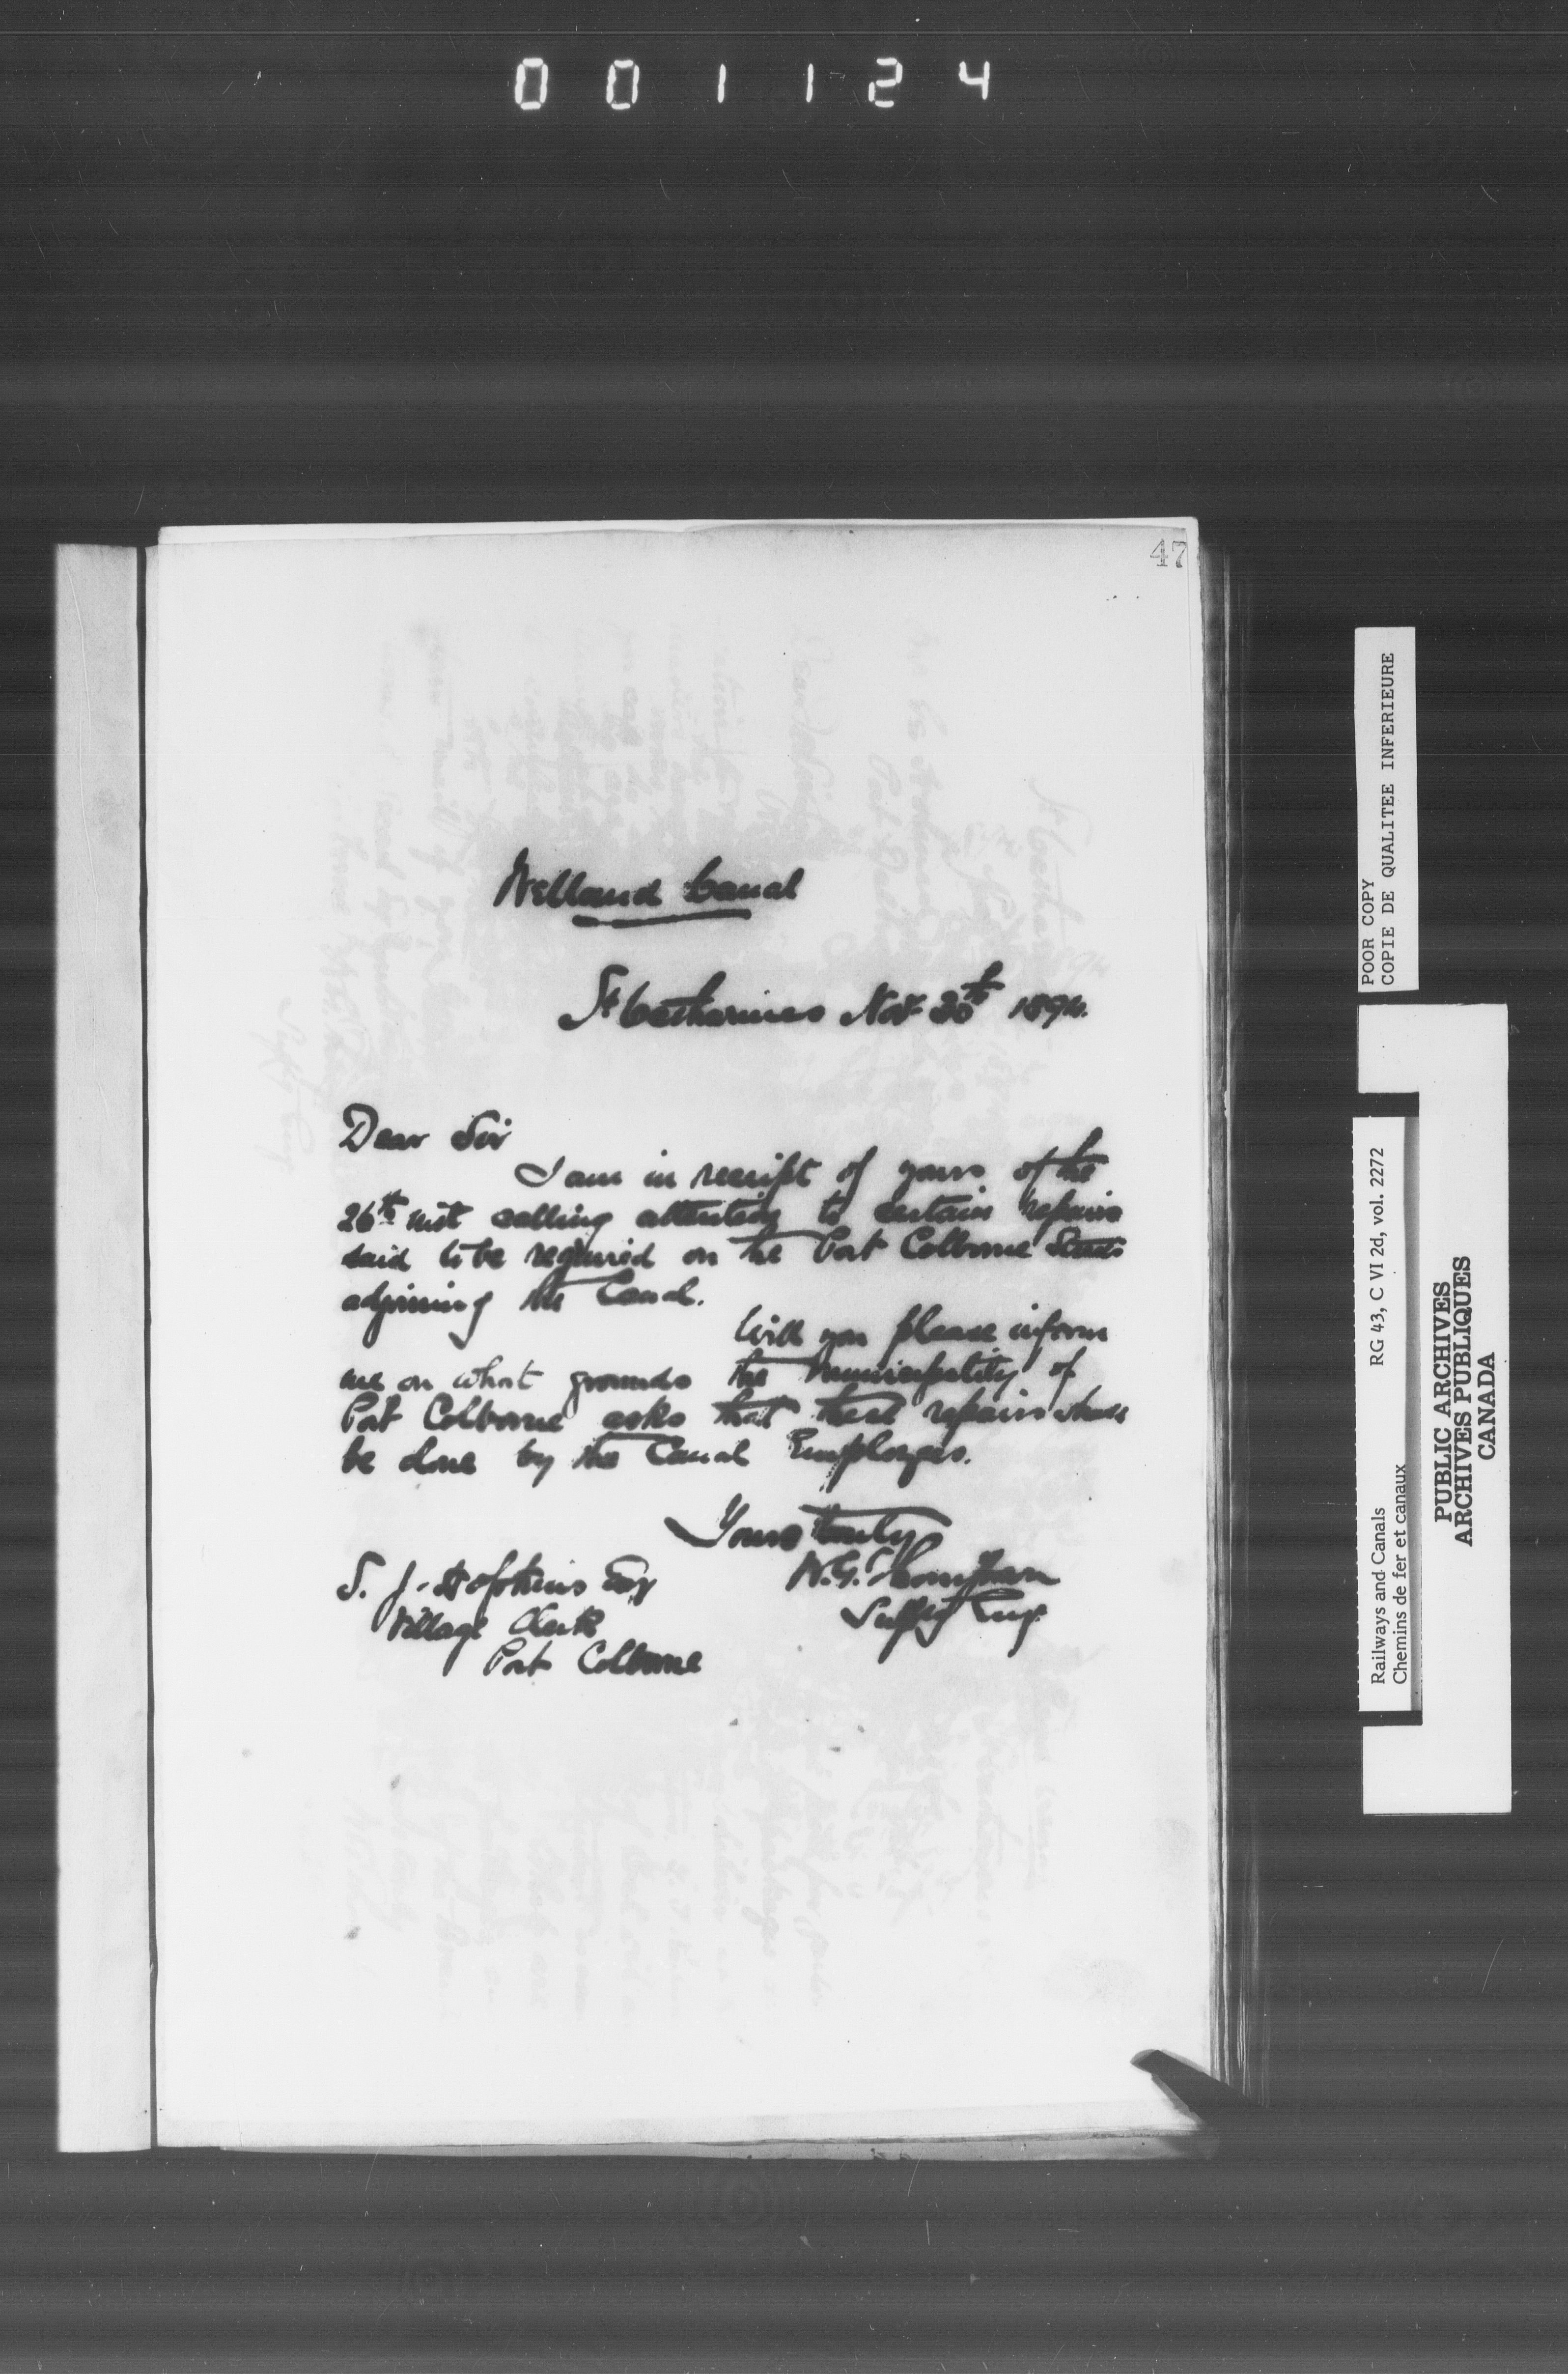 001124
47
Welland Canal
St Catharines Nov 30th 1894.
Dear Sir
I am in receipt of yours of the
26th inst calling attention to certain repairs
said to be required on the Port Colborne Streets
adjoining the Canal.
Will you please inform
me on what grounds the Municipality of
Port Colborne asks that these repairs should
be done by the Canal Employees.
Yours truly
W.G. Thompson
Supt'g Eng.
S. J. Hopkins Esq
Village Clerk
Port Colborne
POOR COPY
COPIE DE QUALITEE INFERIEURE
RG 43, C VI 2d, vol. 2272
Railways and Canals
Chemins de fer et canaux
PUBLIC ARCHIVES
ARCHIVES PUBLIQUES
CANADA